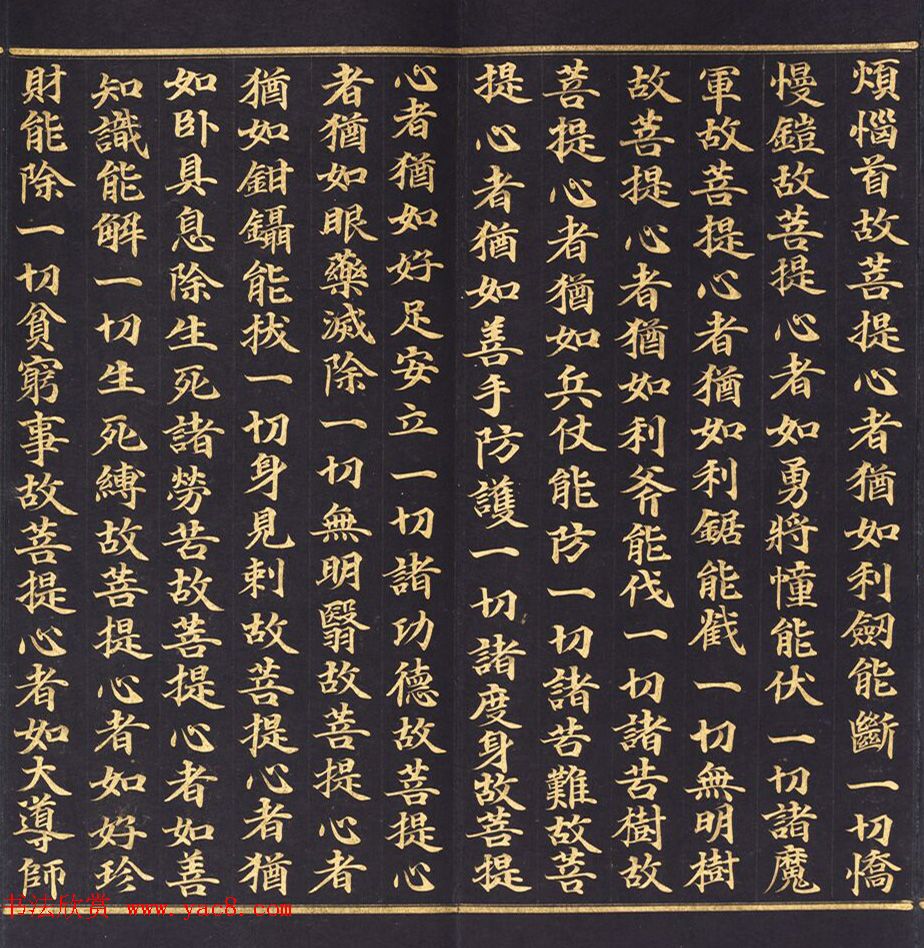 煩惱首故菩提心者猶如利劒能斷一切憍
慢鎧故菩提心者如勇將幢能伏一切諸魔
軍故菩提心者猶如利鋸能截一切無明樹
故菩提心者猶如利斧能伐一切諸苦樹故
菩提心者猶如兵仗能防一切諸苦難故菩
提心者猶如善手防護一切諸度身故菩提
心者猶如好足安立一切諸功德故菩提心
者猶如眼藥滅除一切無明翳故菩提心者
猶如鉗鑷能拔一切身見刺故菩提心者猶
如卧具息除生死諸勞苦故菩提心者如善
知識能解一切生死縛故菩提心者如好珍
財能除一切貧窮事故菩提心者如大導師
书法欣赏 www.yac8.com